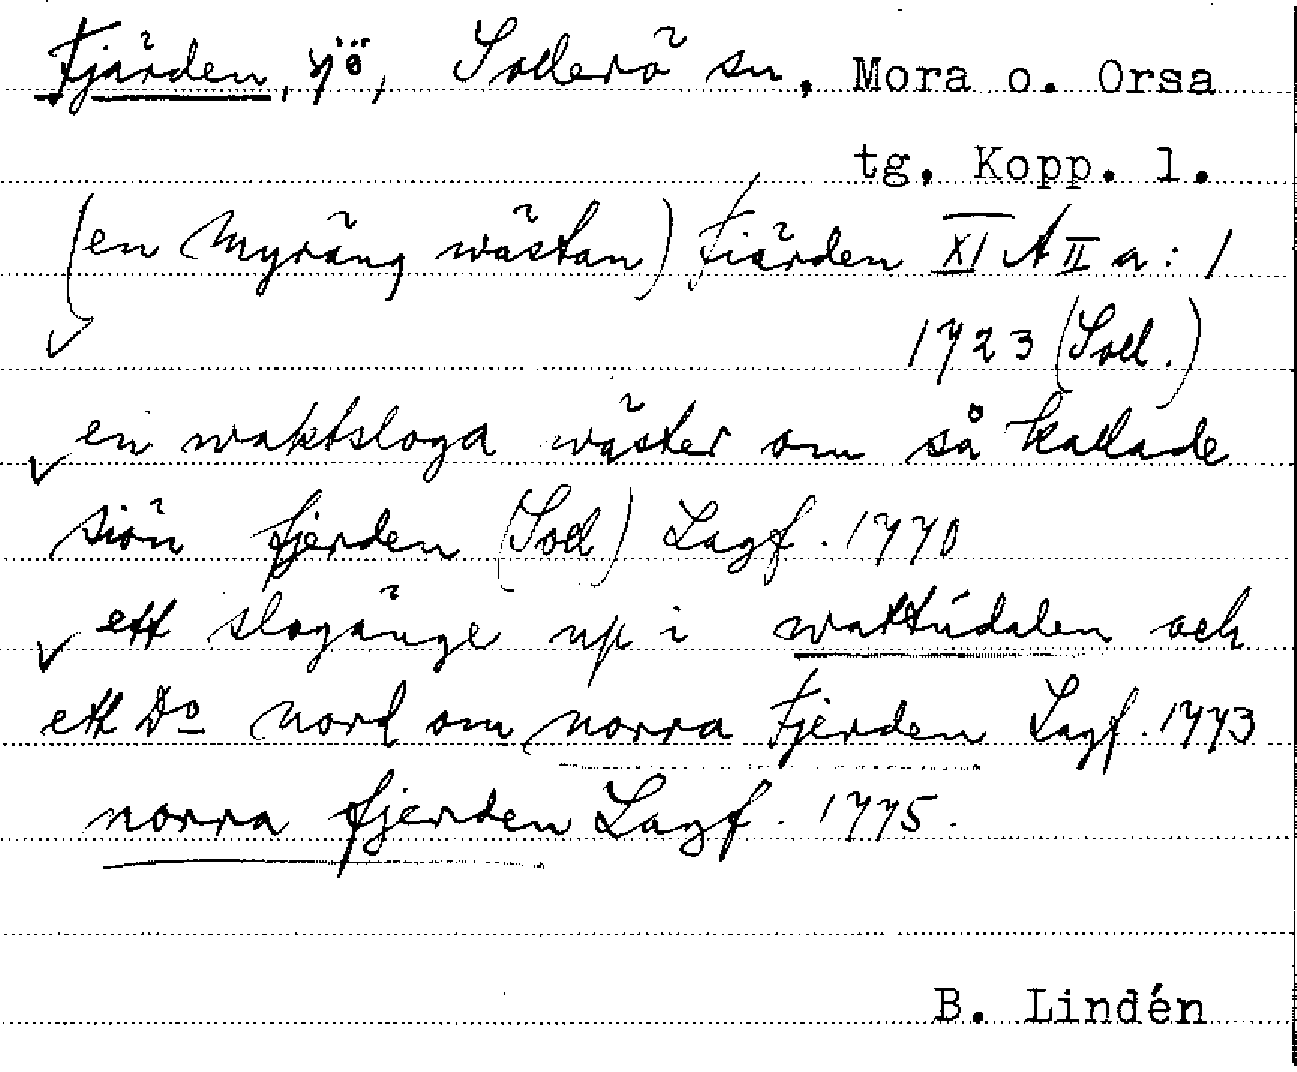 Fjärden, sjö, Sollerö sn, Mora o. Orsa
tg. Kopp. l.
(en Myräng wästan) Fiärden XI A II a: 1
1723 (Soll.)
en waktsloga wäster om så kallade
siön fjerden (Soll) Lagf. 1770
ett slogänge up i wattúdalen och
ett Do nord om norra Fjerden Lagf. 1773
norra fjerden Lagf. 1775.
B. Lindén